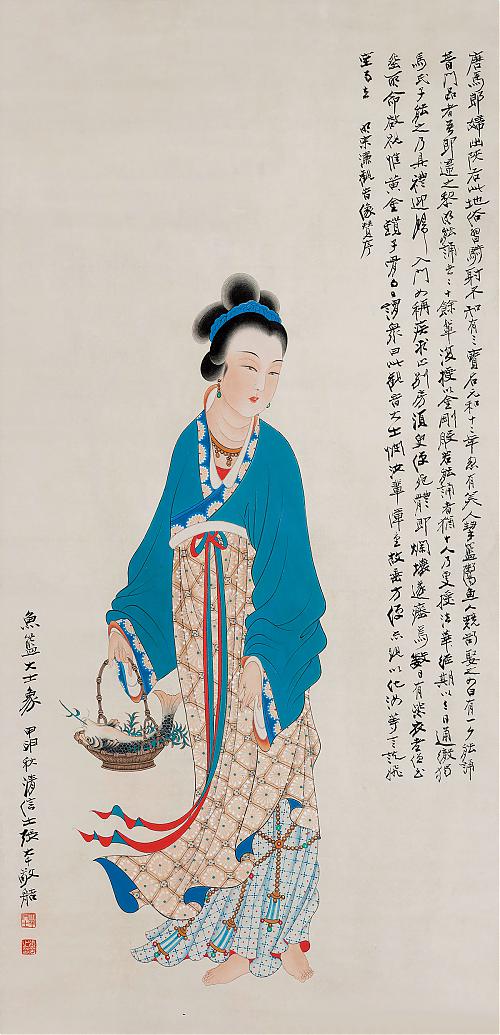 唐馬郎婦出陝右此地俗習騎射不知有三寶名元和十二年忽有美人挈籃鬻魚人競欲娶之曰有一夕能誦
普門品者吾即適之黎明能誦者二十餘輩復授以金剛般若能誦者猶十人乃更授法華經期以三日通徹獨
馬氏子能之乃具禮迎歸入門女稱疾求止別房須臾便死體即爛壞遂瘞焉數日有紫衣老僧至
瘞所命啟視惟黃金鎖子骨謂衆曰此觀音大士憫汝輩障重故垂方便示現以化汝等言訖飛
空而去 明宋濂觀音像贊序
魚籃大士象 甲申秋清信士張大千敬繪